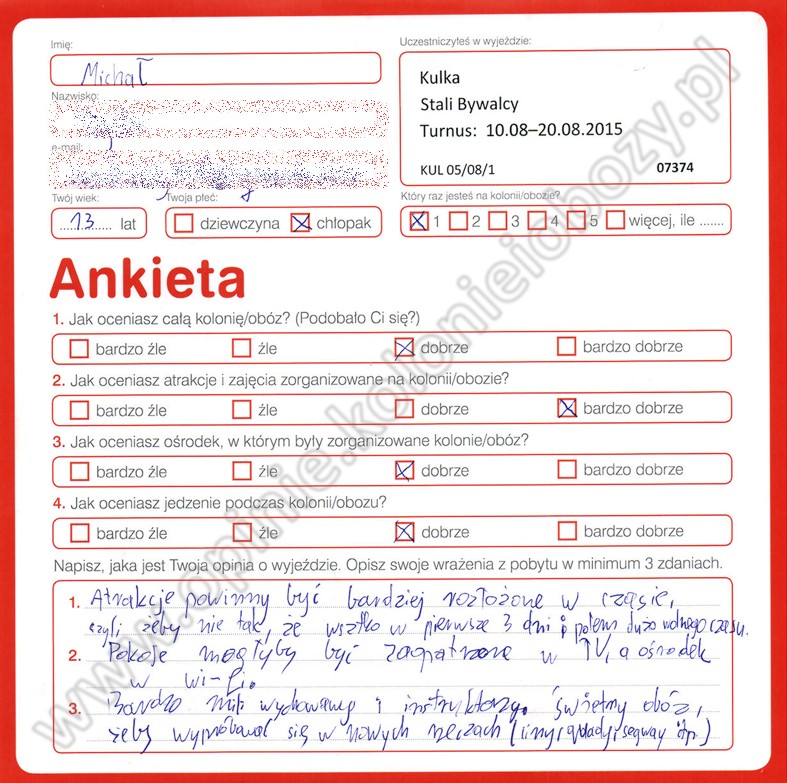 Imię:
Michał
Nazwisko:
e-mail:
Twój wiek:
13 lat
Twoja płeć:
dziewczyna chłopak
Uczestniczyłeś w wyjeździe:
Kulka
Stali Bywalcy
Turnus: 10.08–20.08.2015
KUL 05/08/1 07374
Który raz jesteś na kolonii/obozie?
1 2 3 4 5 więcej, ile .......
Ankieta
1. Jak oceniasz całą kolonię/obóz? (Podobało Ci się?)
bardzo źle źle dobrze bardzo dobrze
2. Jak oceniasz atrakcje i zajęcia zorganizowane na kolonii/obozie?
bardzo źle źle dobrze bardzo dobrze
3. Jak oceniasz ośrodek, w którym były zorganizowane kolonie/obóz?
bardzo źle źle dobrze bardzo dobrze
4. Jak oceniasz jedzenie podczas kolonii/obozu?
bardzo źle źle dobrze bardzo dobrze
Napisz, jaka jest Twoja opinia o wyjeździe. Opisz swoje wrażenia z pobytu w minimum 3 zdaniach.
1. Atrakcje powinny być bardziej rozłożone w czasie,
czyli żeby nie tak, że wsztko w pierwsze 3 dni i potem dużo wolnego czasu.
2. Pokoje mogłyby być zaopatrzone w TV, a ośrodek
w wi-fi.
3. Bardzo mili wychowawcy i instruktorzy. Świetny obóz,
żeby wypróbować się w nowych rzeczach (liny, quady, segway itp.)
www.opinie.kolonieiobozy.pl